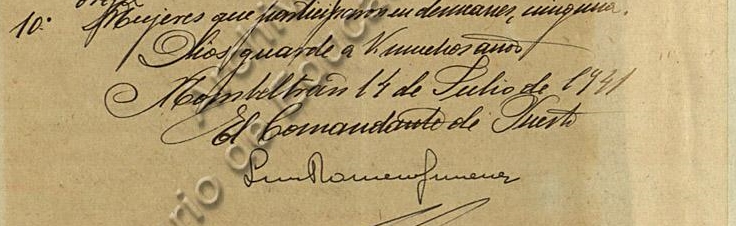 10º Mujeres que participaron en desmanes, ninguna.
Dios guarde a V muchos años
Mombeltrán 14 de Julio de 1941
El Comandante de Puesto
Luis Romero Jimenez